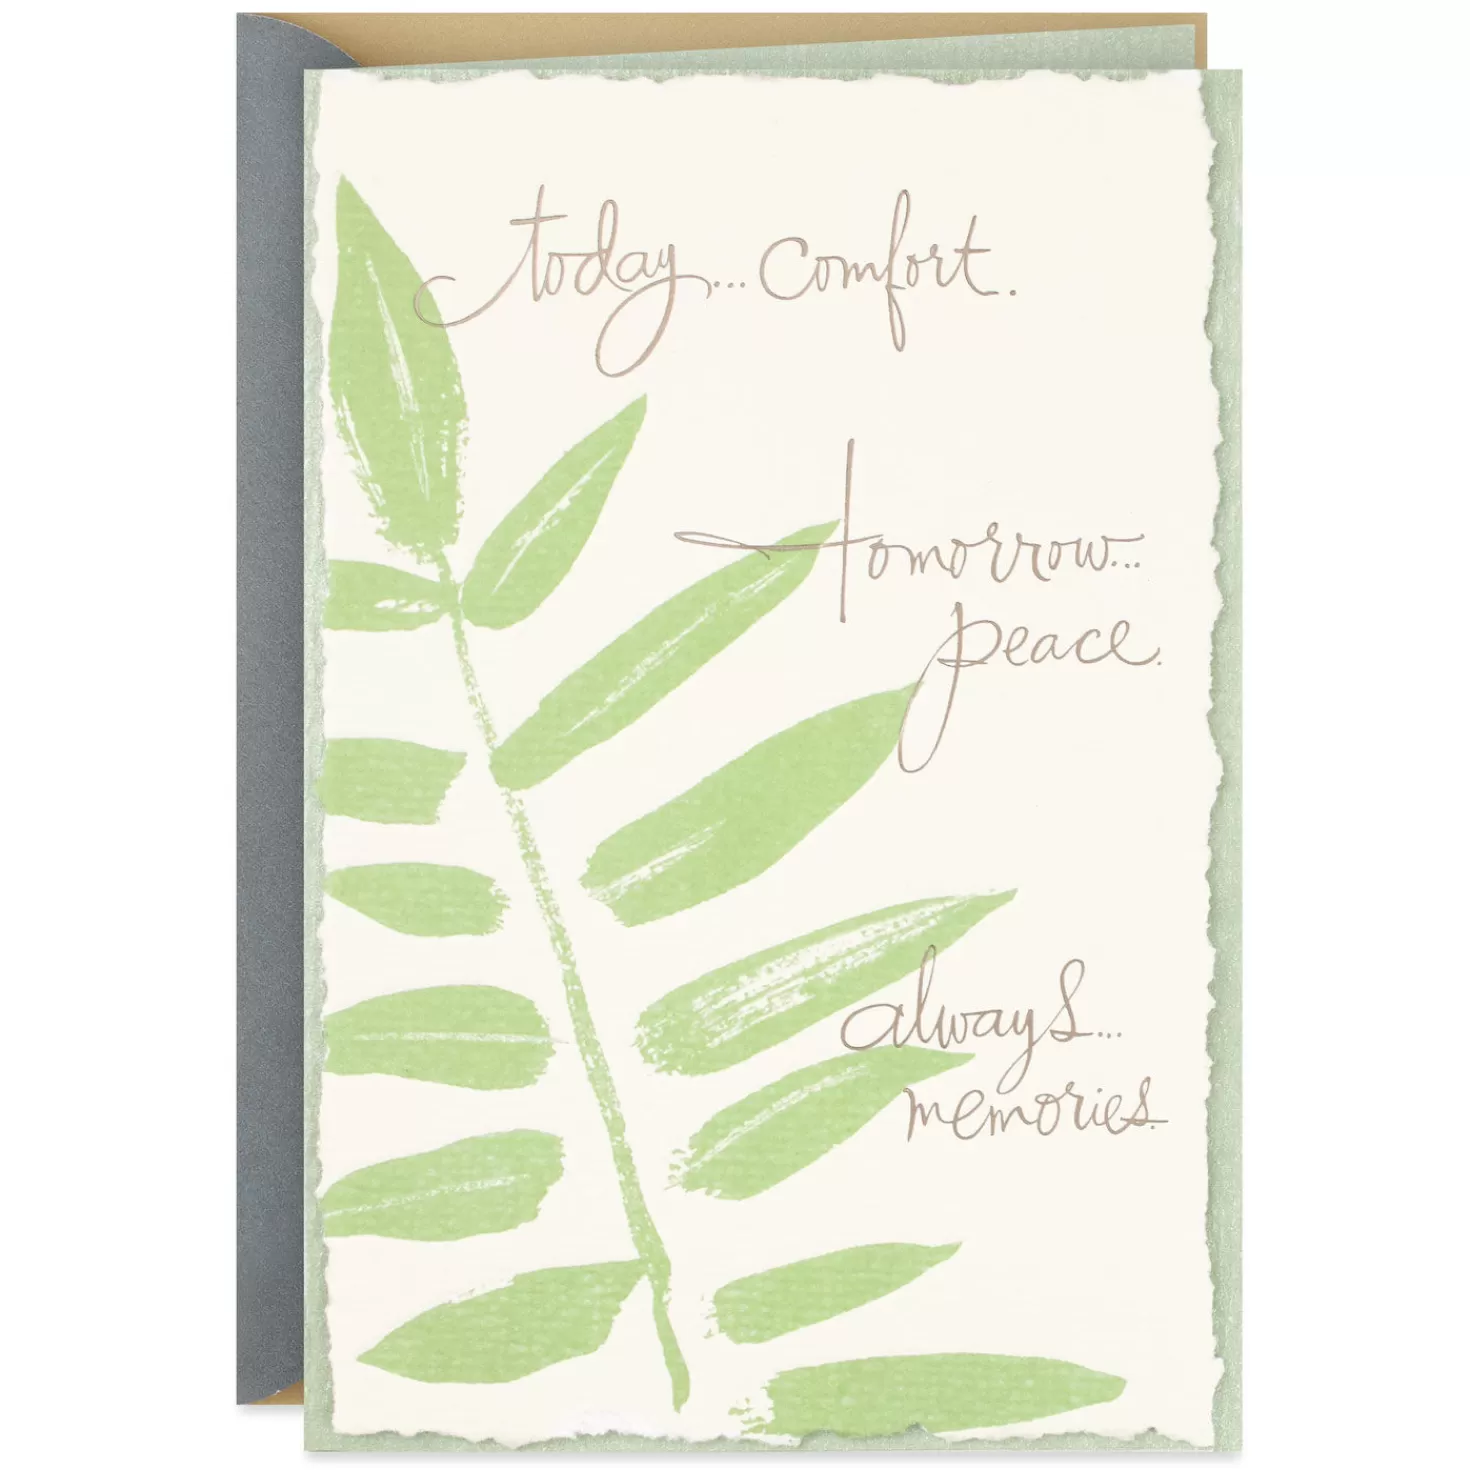 today... comfort.
tomorrow...
peace.
always...
memories.